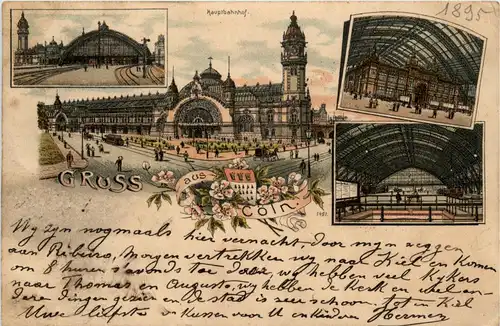 1895
Hauptbahnhof.
GRUSS
aus
Cöln.
Wy zyn nogmaals hier vernacht, door myn zeggen
aan Riburo, Morgen vertrekken wy naar Kiel en Komen
om 8 huren s'avonds ter wy hebben veel Kykers
naar Thomas en Augusto, wy hebben de Kerk en
dere dingen gezien en de stad is zeer schoon. tot in Kiel
Uwe liefste en Kussen voor U en Kinderen Hermen